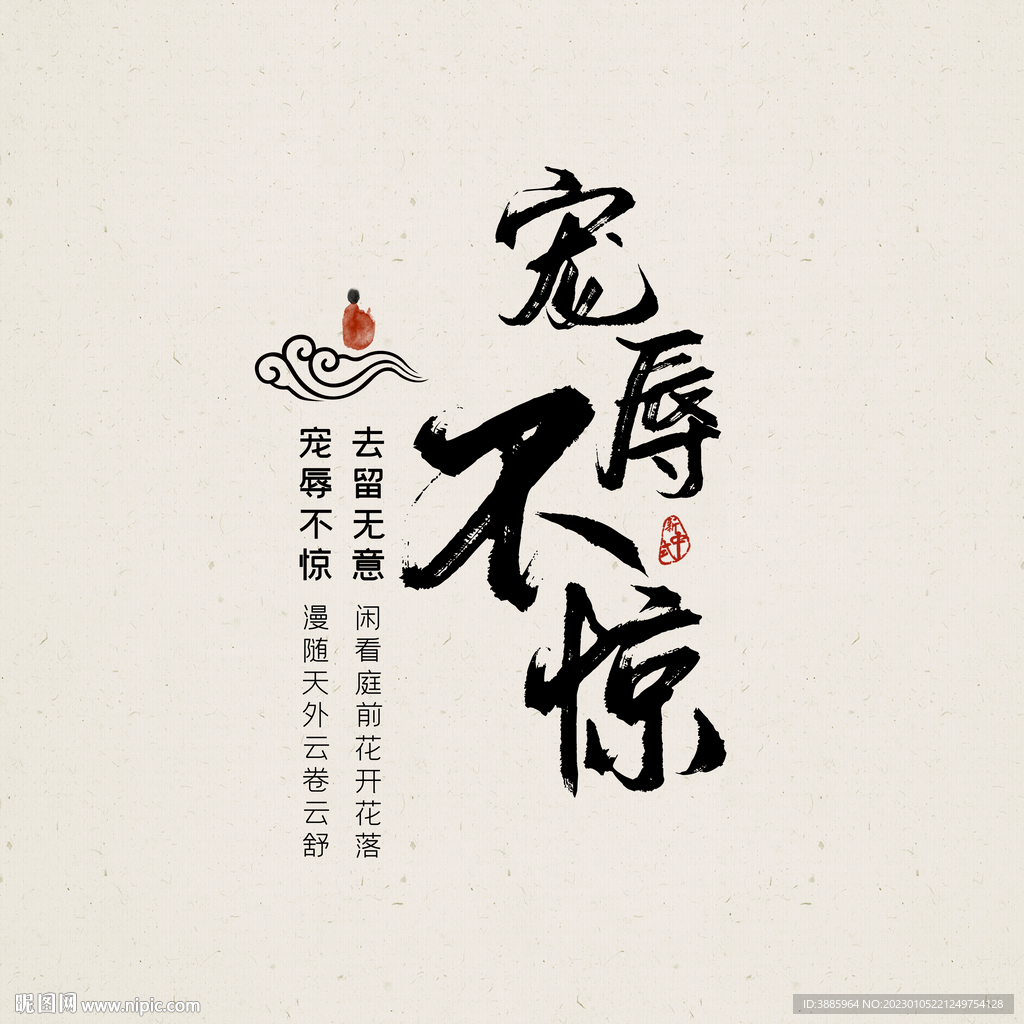 宠辱不惊
新中式
去留无意 闲看庭前花开花落
宠辱不惊 漫随天外云卷云舒
昵图网 www.nipic.com
ID:3885964 NO:20230105221249754128